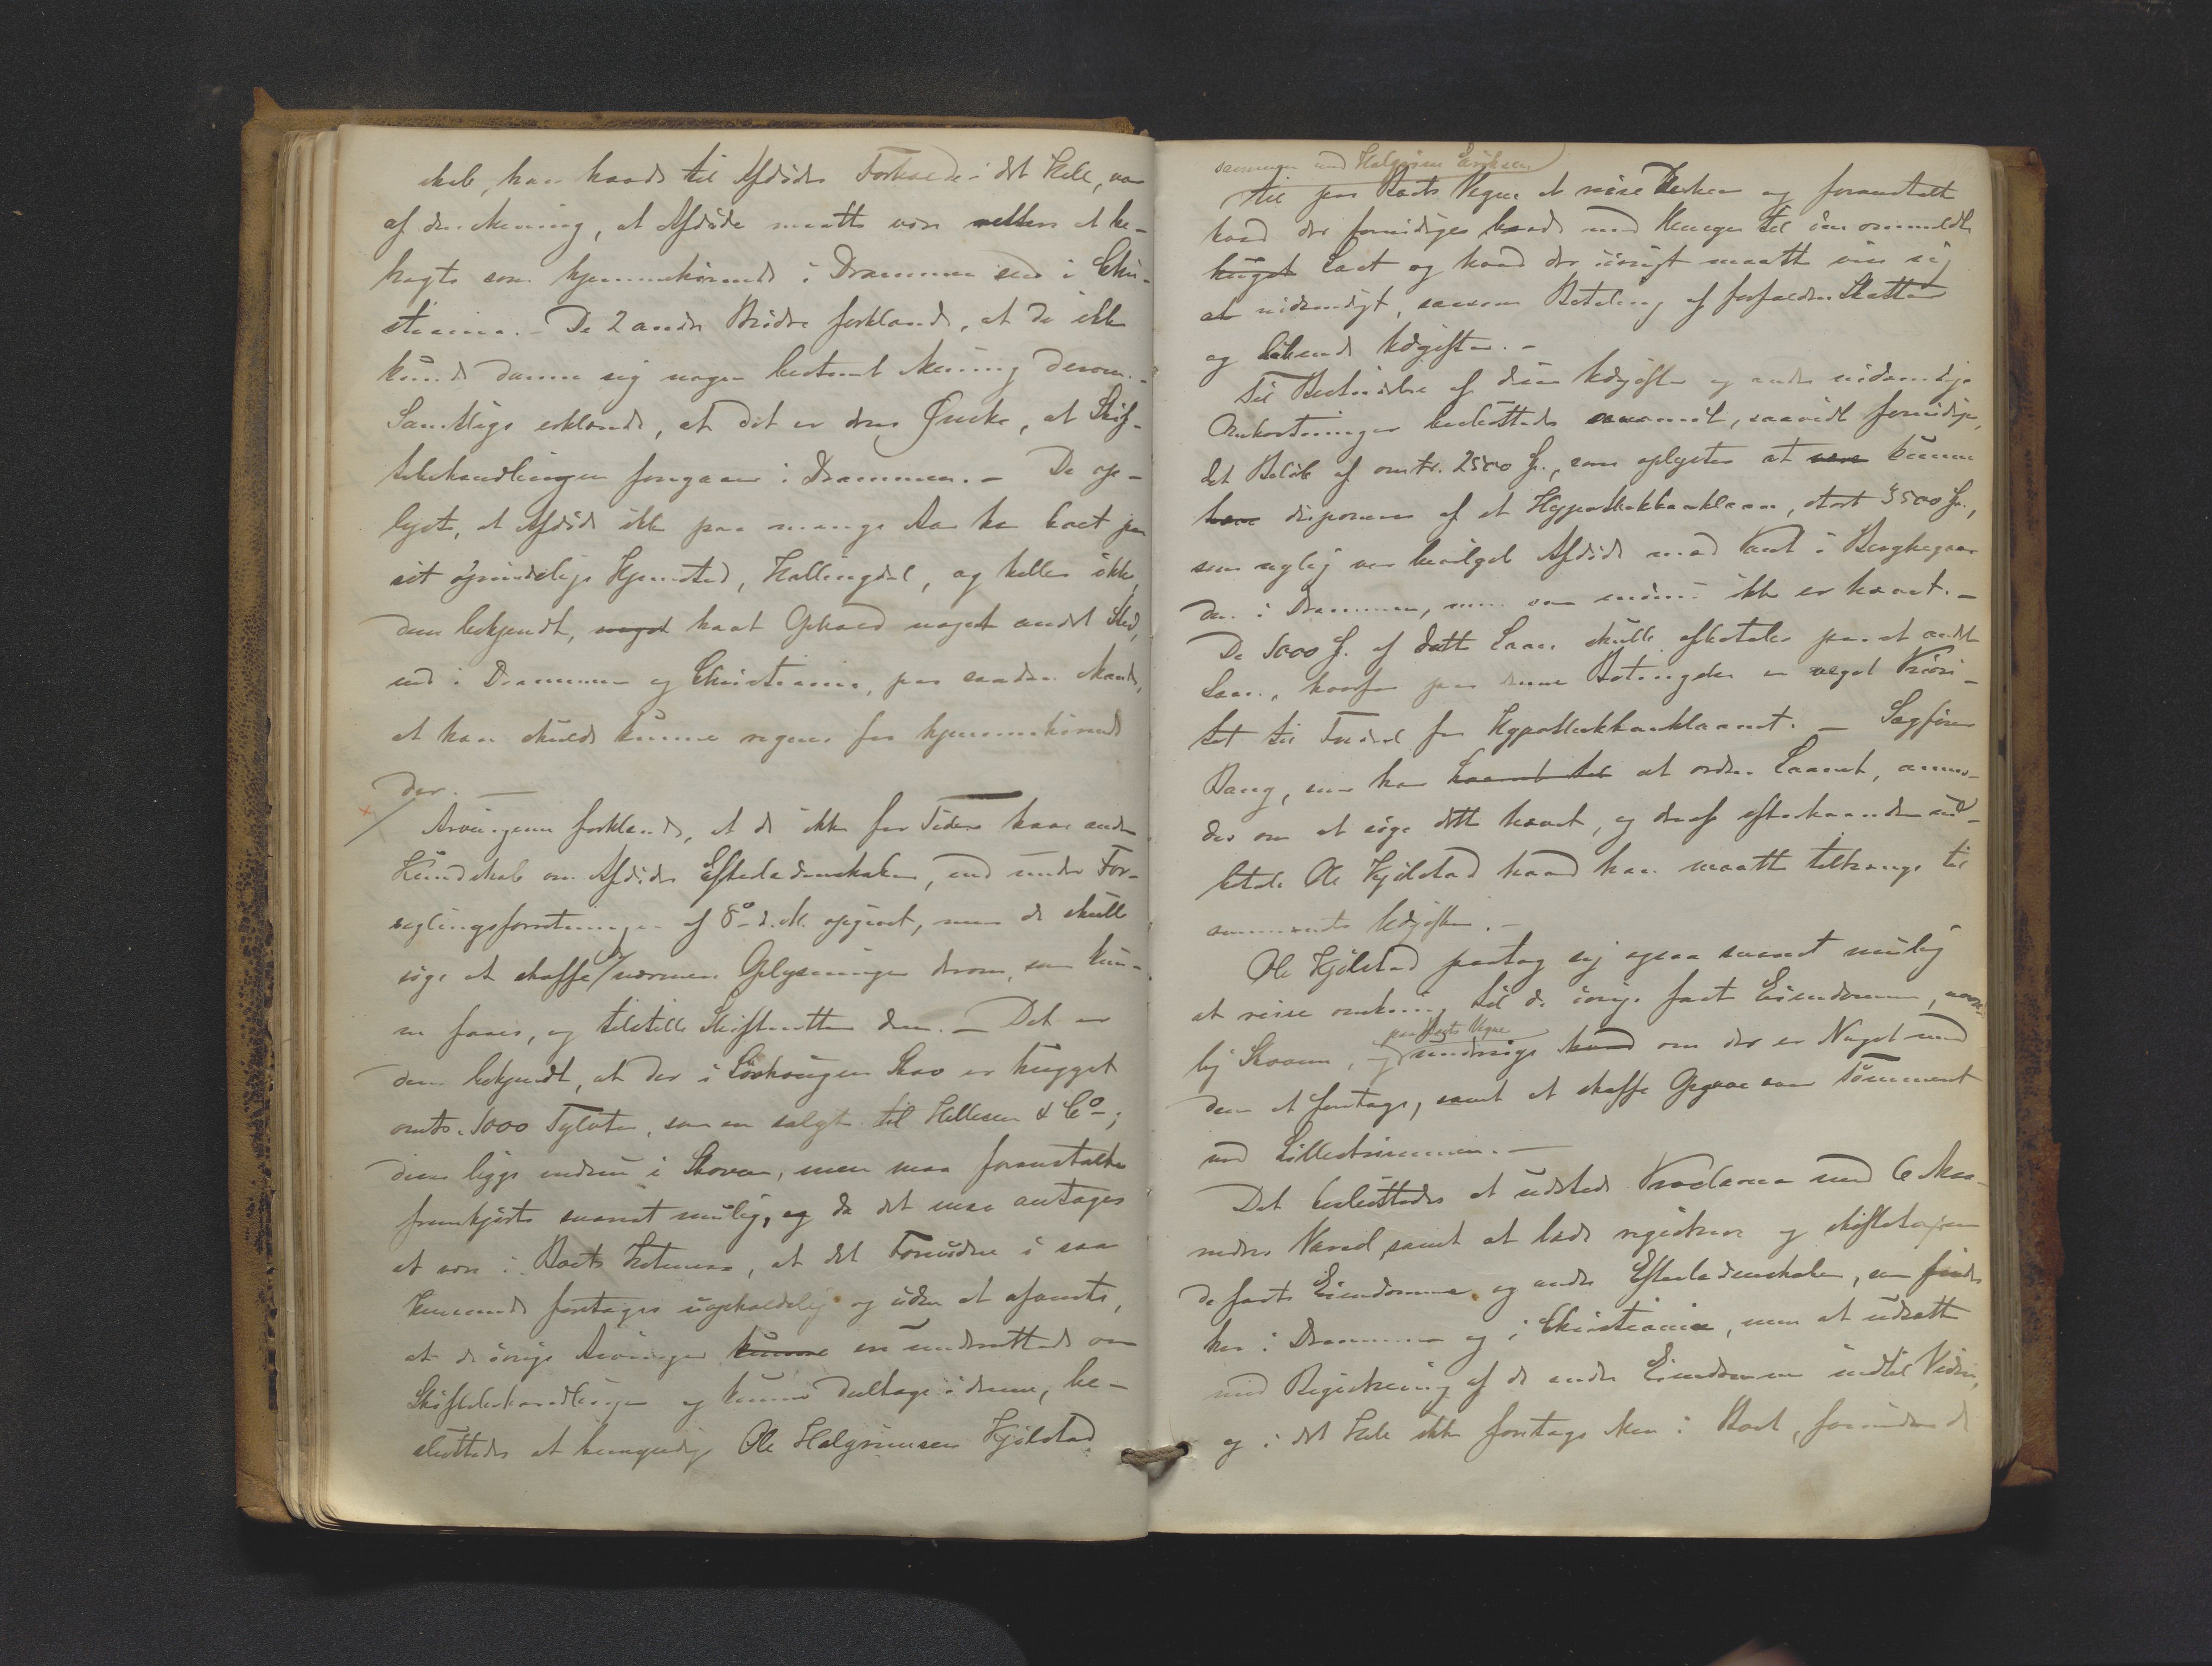 skab, han havde til Afdødes Forholde i det Hele, var
af den Mening, at Afdøde maatte være rettere at be-
tragte som hjemmehørende i Drammen end i Chri-
stiania. – De 2 andre Brødre forklarede, at de ikke
kunde danne sig nogen bestemt Mening derom. –
Samtlige erklærede, at det er deres Ønske, at Skif-
tebehandlingen foregaar i Drammen. – De op-
lyste, at Afdøde ikke paa mange Aar har boet paa
sit oprindelige Hjemsted, Hallingdal, og heller ikke,
dem bekjendt, noget havt Ophold noget andet Sted,
end i Drammen og Christiania, paa saadan Maade,
at han skulde kunne regnes for hjemmehørende
der. –
Arvingerne forklarede, at de ikke for Tiden have anden
Kundskab om Afdødes Efterladenskaber, end under For-
seglingsforretningen af 8de d. M. opgivet, men de skulle
søge at skaffe de nærmere Oplysninger derom, som kun-
ne faaes, og tilstille Skifteretten dem. – Det er
dem bekjendt, at der i Skov er hugget
omtr. 1000 Tylvter, som er solgt til Hellesen & Co;
disse ligge endnu i Skoven, men maa foranstaltes
fremkjørte snarest mulig, og da det maa antages
at være i Boets Interesse, at det Fornødne i saa
Henseende foretages uopholdelig og uden at afvente,
at de øvrige Arvinger kunne er underrettede om
Skiftebehandlingen og kunne deltage i denne, be-
sluttedes at bemyndige Ole Halgrimsen Kjølstad
sammen med Halgrim Eriksen
til paa Boets Vegne at reise og foranstalte
hvad der fornødiges baade med Hensyn til den ommeldte
hugst Last og hvad der iøvrigt maatte vise sig
at nødvendigt, saasom Betaling af forfaldne Skatter
og løbende Udgifter. –
Til Bestridelse af disse Udgifter og andre nødvendige
Omkostninger besluttedes anvendt, saavidt fornødiges,
det Beløb af omtr. 2500 Kr., som oplystes at være kunne
have disponeres af et Hypothekbanklaan, stort 3500 Kr.,
som nylig var bevilget Afdøde mod Pant i Bergkegaar-
den i Drammen, men som endnu ikke er hævet. –
De 1000 Kr. af dette Laan skulle afbetales paa et andet
Laan, hvorfor paa denne Betingelse er veget Priori-
tet til Fordel for Hypothekbanklaanet. – Sagfører
Bang, som har havet til at ordne Laanet, anmo-
des om at søge dette hævet, og deraf efterhaanden ud-
betale Ole Kjølstad hvad han maatte tiltrænge til
omnævnte Udgifter. –
Ole Kjølstad paatog sig ogsaa snarest mulig
at reise omkring til de øvrige faste Eiendomme, navn-
lig Skovene, og paa Boets Vegne undersøge hvad om der er Noget med
dem at foretage, samt at skaffe Opgave over Tømmeret
ved Lillestrømmen. –
Det besluttedes at udstede Proclama med 6 Maa-
neders Varsel, samt at lade registrere og skiftetaxere
de faste Eiendomme og andre Efterladenskaber, som findes
her i Drammen og i Christiania, men at udsætte
med Registrering af de andre Eiendomme indtil Videre,
og i det Hele ikke foretage Mere i Boet, forinden de